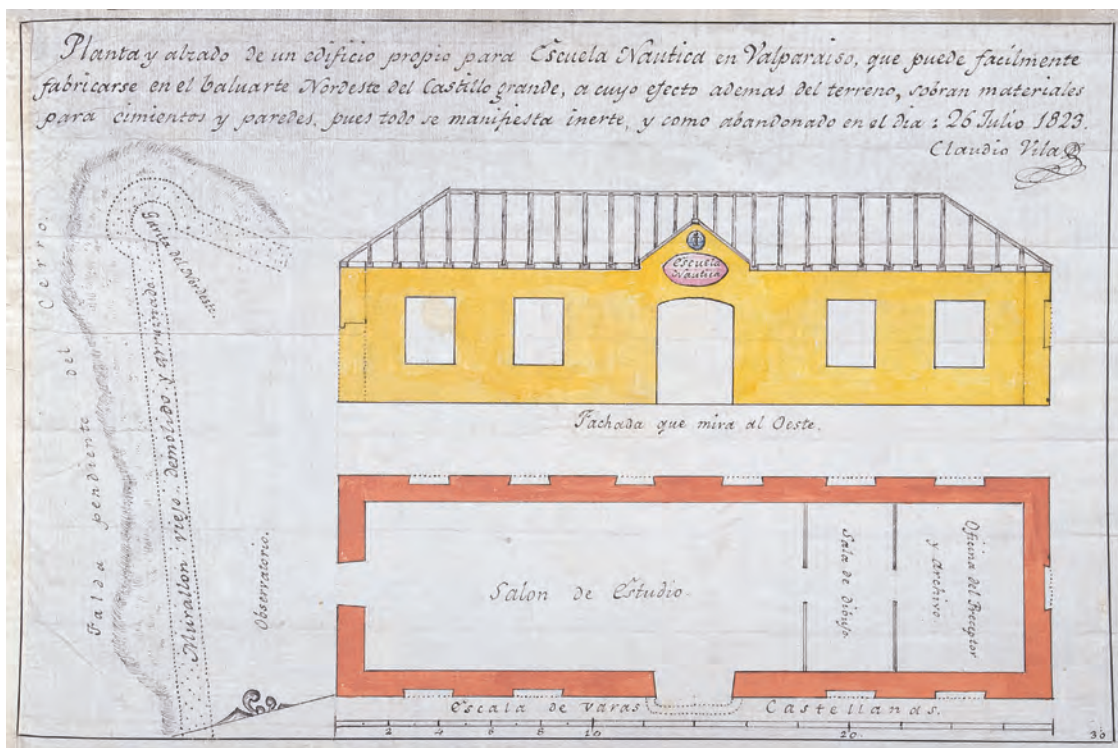 Planta y alzado de un edificio propio para Escuela Nautica en Valparaiso, que puede facilmente
fabricarse en el baluarte Nordeste del Castillo grande, a cuyo efecto ademas del terreno, sobran materiales
para cimientos y paredes, pues todo se manifiesta inerte, y como abandonado en el dia: 26 Julio 1823.
Claudio Vila
Falda pendiente del Cerro.
Garita del Nordeste.
Murallon viejo demolido y arruinado.
Observatorio.
Escuela
Nautica
Fachada que mira al Oeste.
Salon de Estudio.
Sala de dibujo.
Oficina del Preceptor
y archivo.
Escala de varas Castellanas.
2 4 6 8 10 20 30